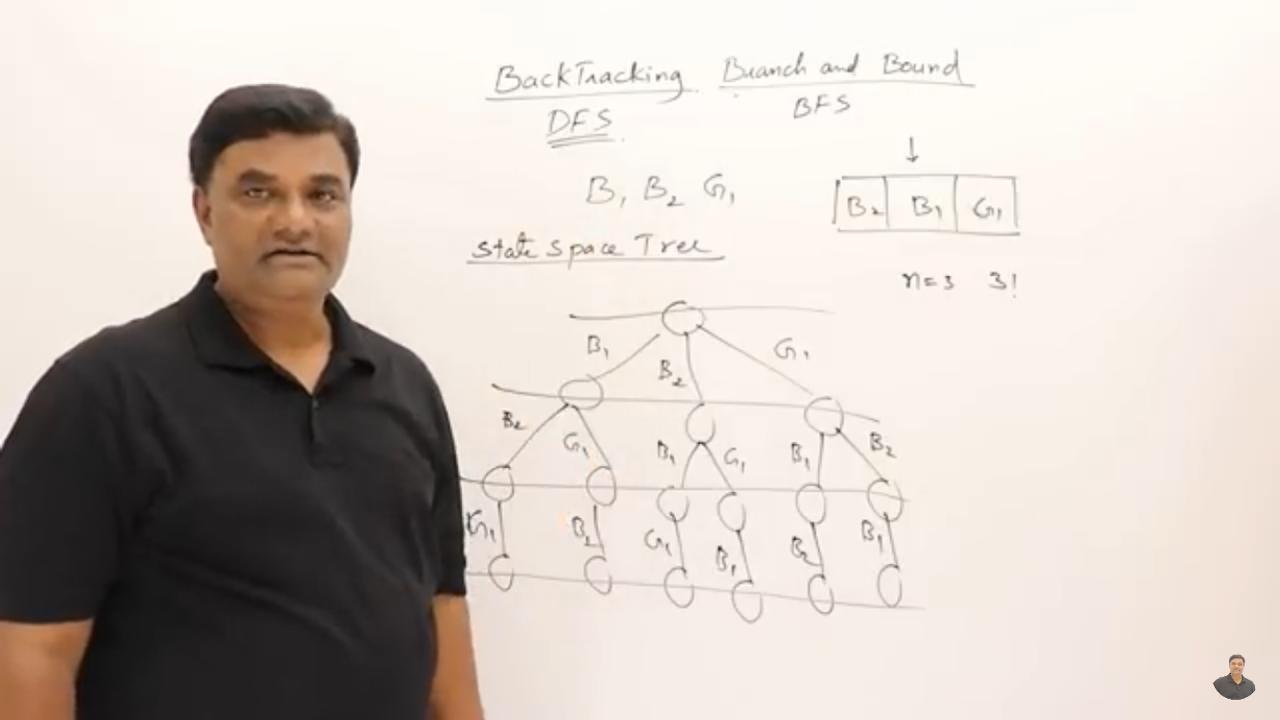 BackTracking Branch and Bound
DFS BFS
B₁ B₂ G₁
↓
B₂ B₁ G₁
State Space Tree
n=3 3!
B₁ B₂ G₁
B₂ G₁ B₁ G₁ B₁ B₂
G₁ B₂ G₁ B₁ B₂ B₁